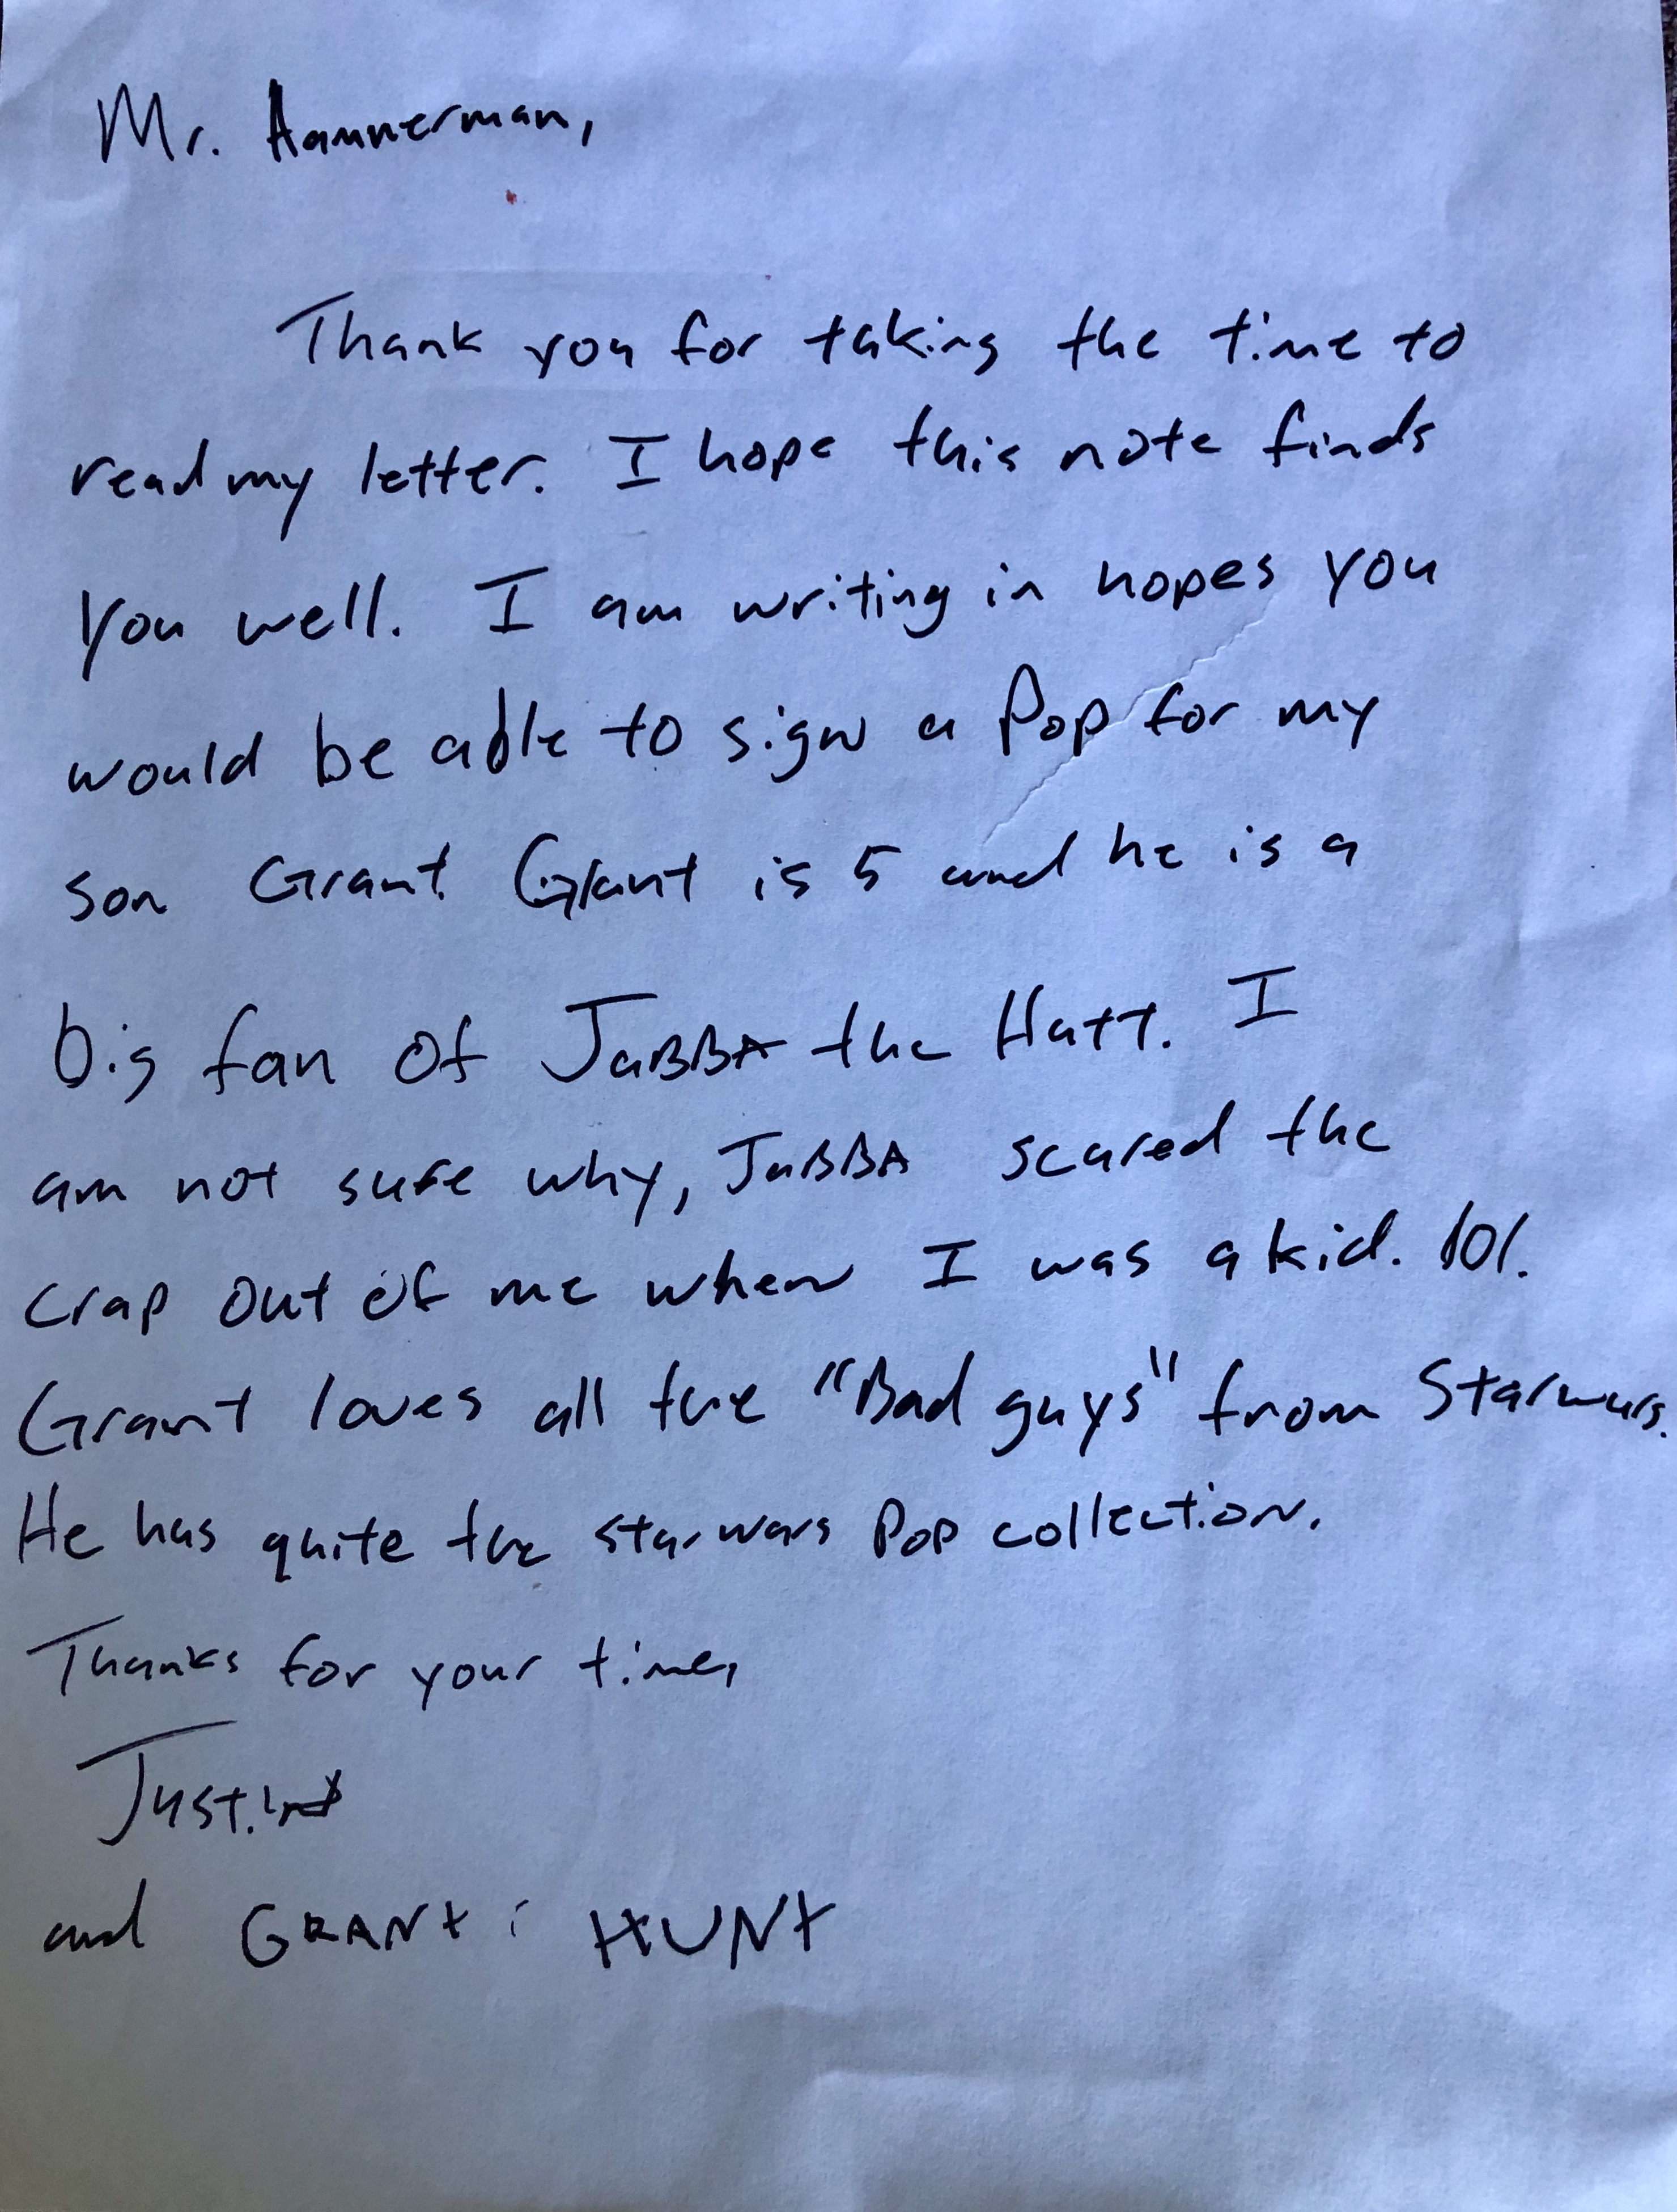 Mr. Aamnerman,
Thank you for taking the time to
read my letter. I hope this note finds
you well. I am writing in hopes you
would be able to sign a Pop for my
son Grant. Grant is 5 and he is a
big fan of JaBBA the Hutt. I
am not sure why, JaBBA scared the
crap out of me when I was a kid. lol.
Grant loves all the "Bad guys" from Starwars.
He has quite the starwars Pop collection.
Thanks for your time,
Justin
and GRANt HUNt